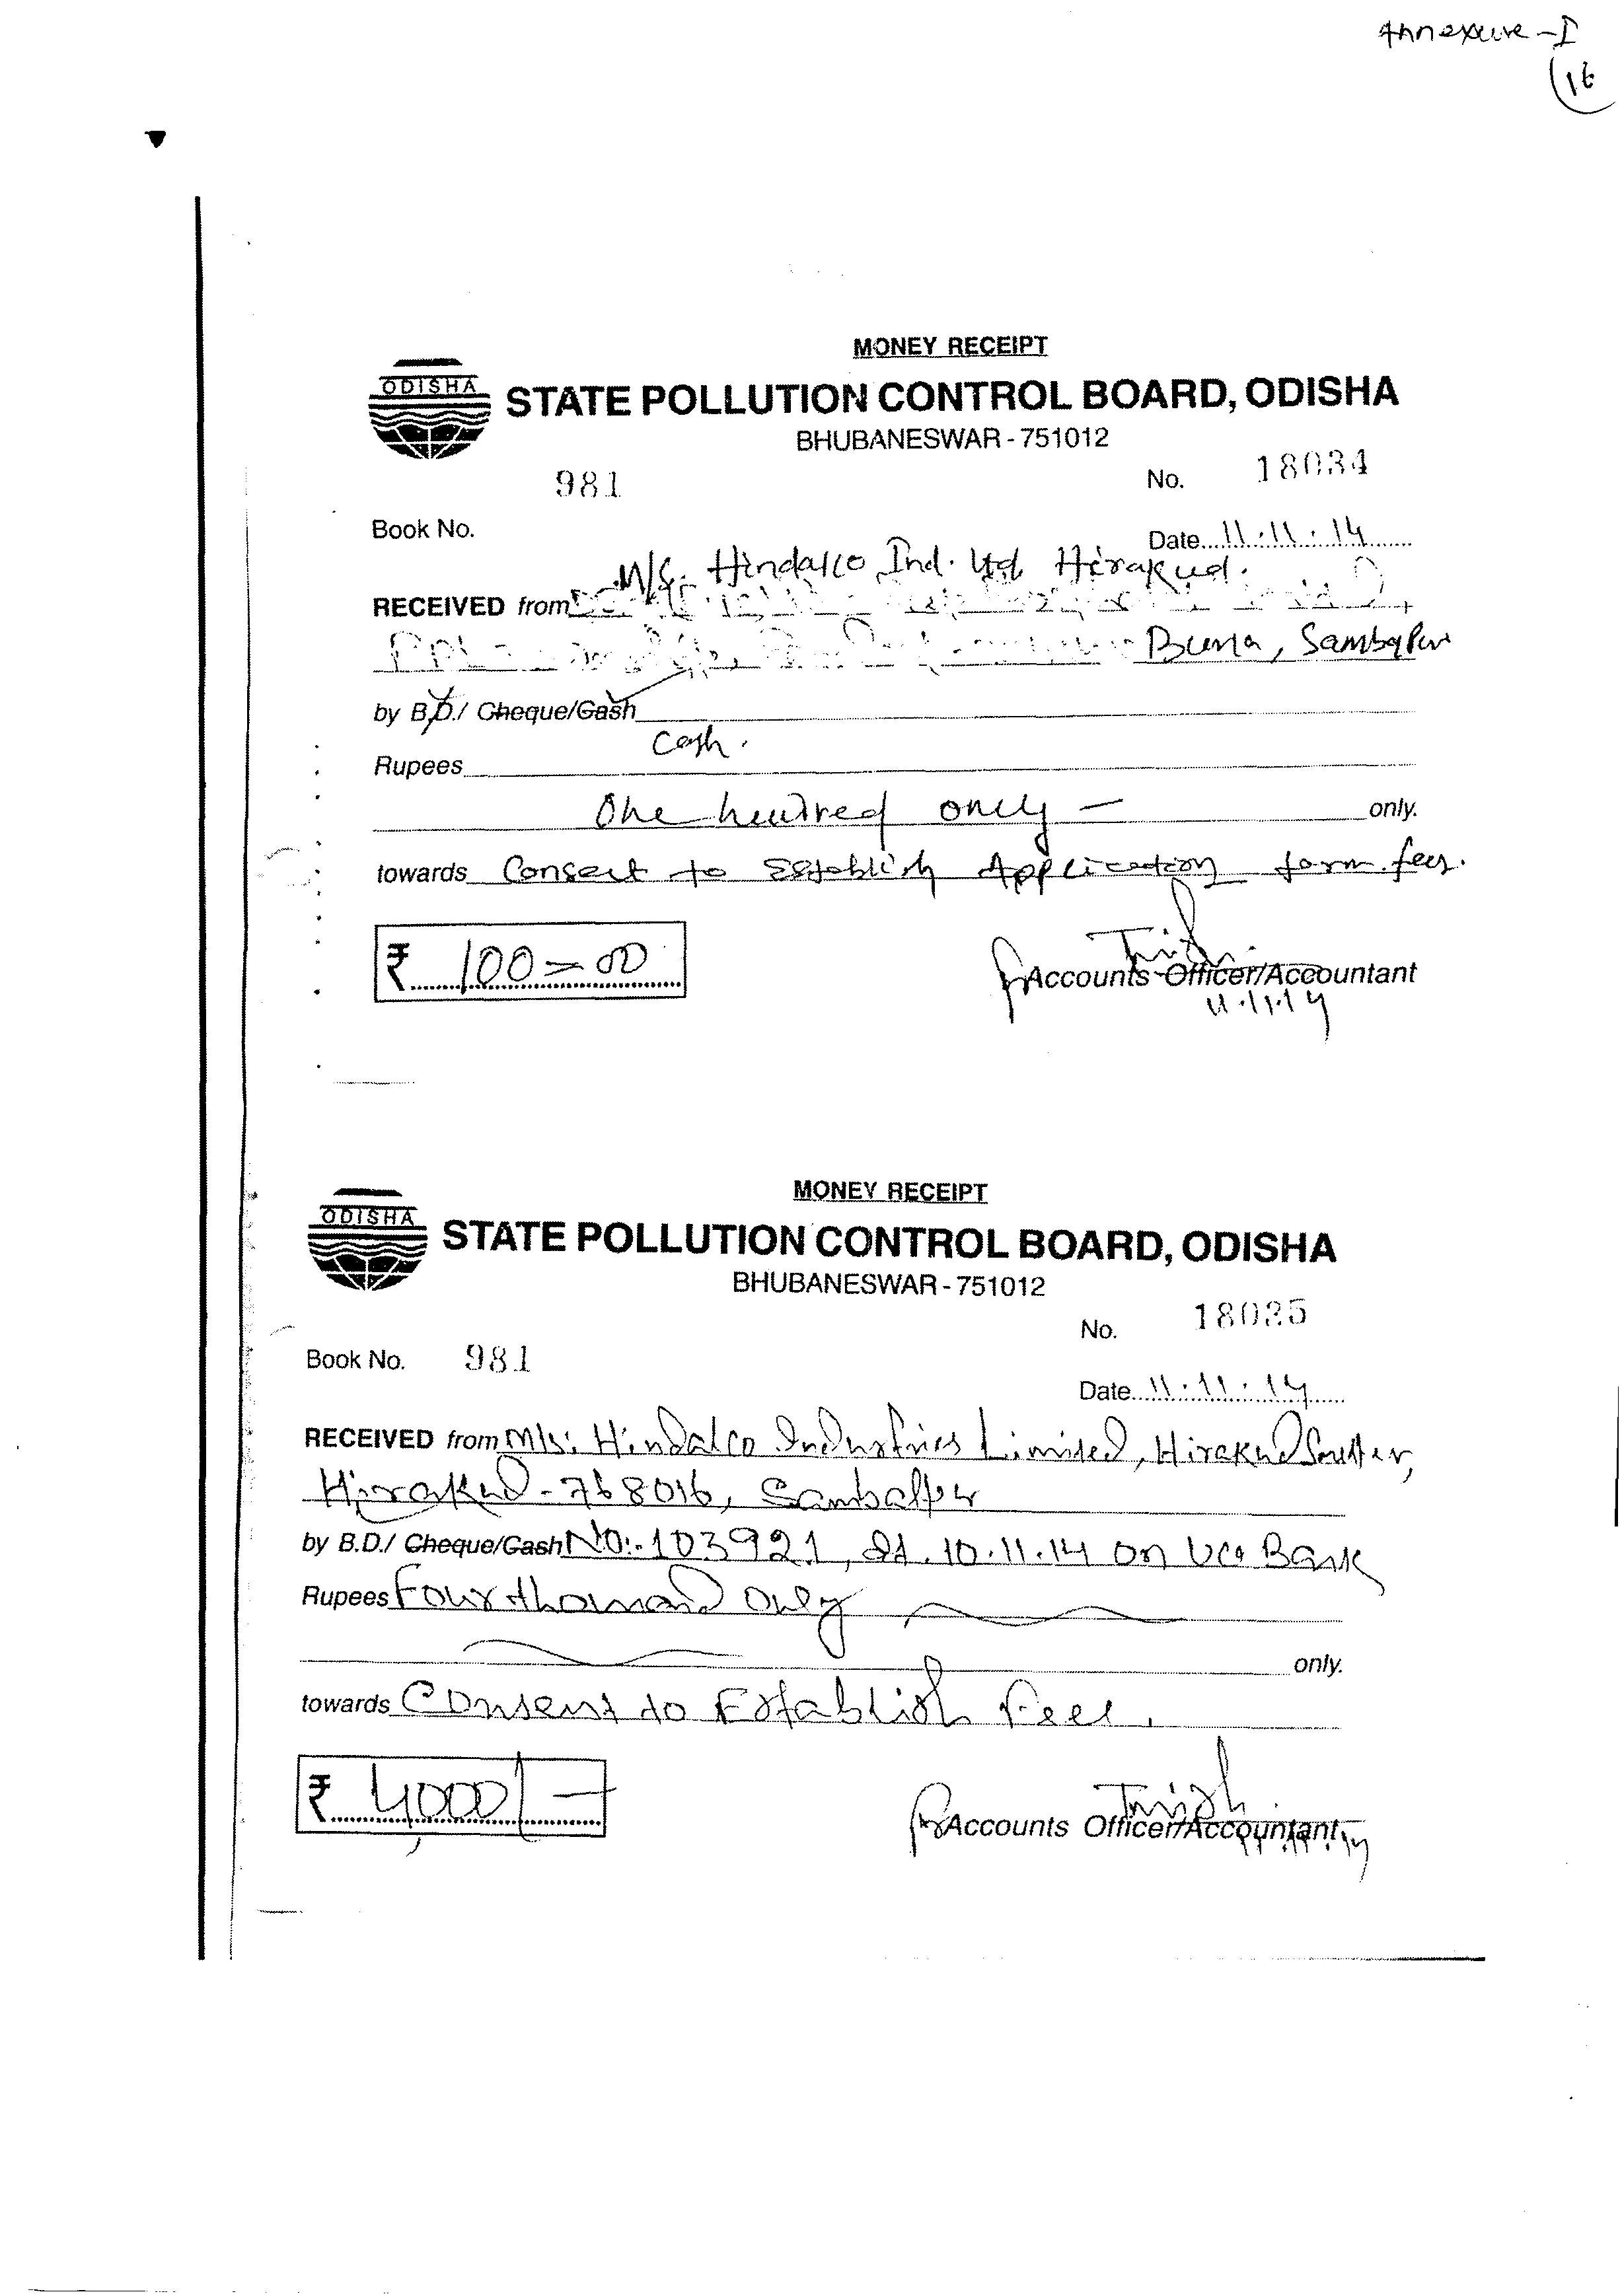 Annexure - I
16
MONEY RECEIPT
ODISHA
STATE POLLUTION CONTROL BOARD, ODISHA
BHUBANESWAR - 751012
981
No. 18034
Book No.
Date 11.11.14
M/s. Hindalco Ind. Ltd Hirakud.
RECEIVED from
Burla, Sambalpur
by B.D./ Cheque/Cash
Cash.
Rupees
One hundred only — only.
towards Consent to Establish Application form fees.
₹ 100=00
Accounts Officer/Accountant
11.11.14
MONEY RECEIPT
ODISHA
STATE POLLUTION CONTROL BOARD, ODISHA
BHUBANESWAR - 751012
No. 18035
Book No. 981
Date 11.11.14
RECEIVED from M/s: Hindalco Industries Limited, Hirakud Smelter,
Hirakud - 768016, Sambalpur
by B.D./ Cheque/Cash No:- 103921, dt. 10.11.14 on UCO Bank
Rupees Four thousand only
only.
towards Consent to Establish Fees.
₹ 4,000/-
Accounts Officer/Accountant
11.11.14